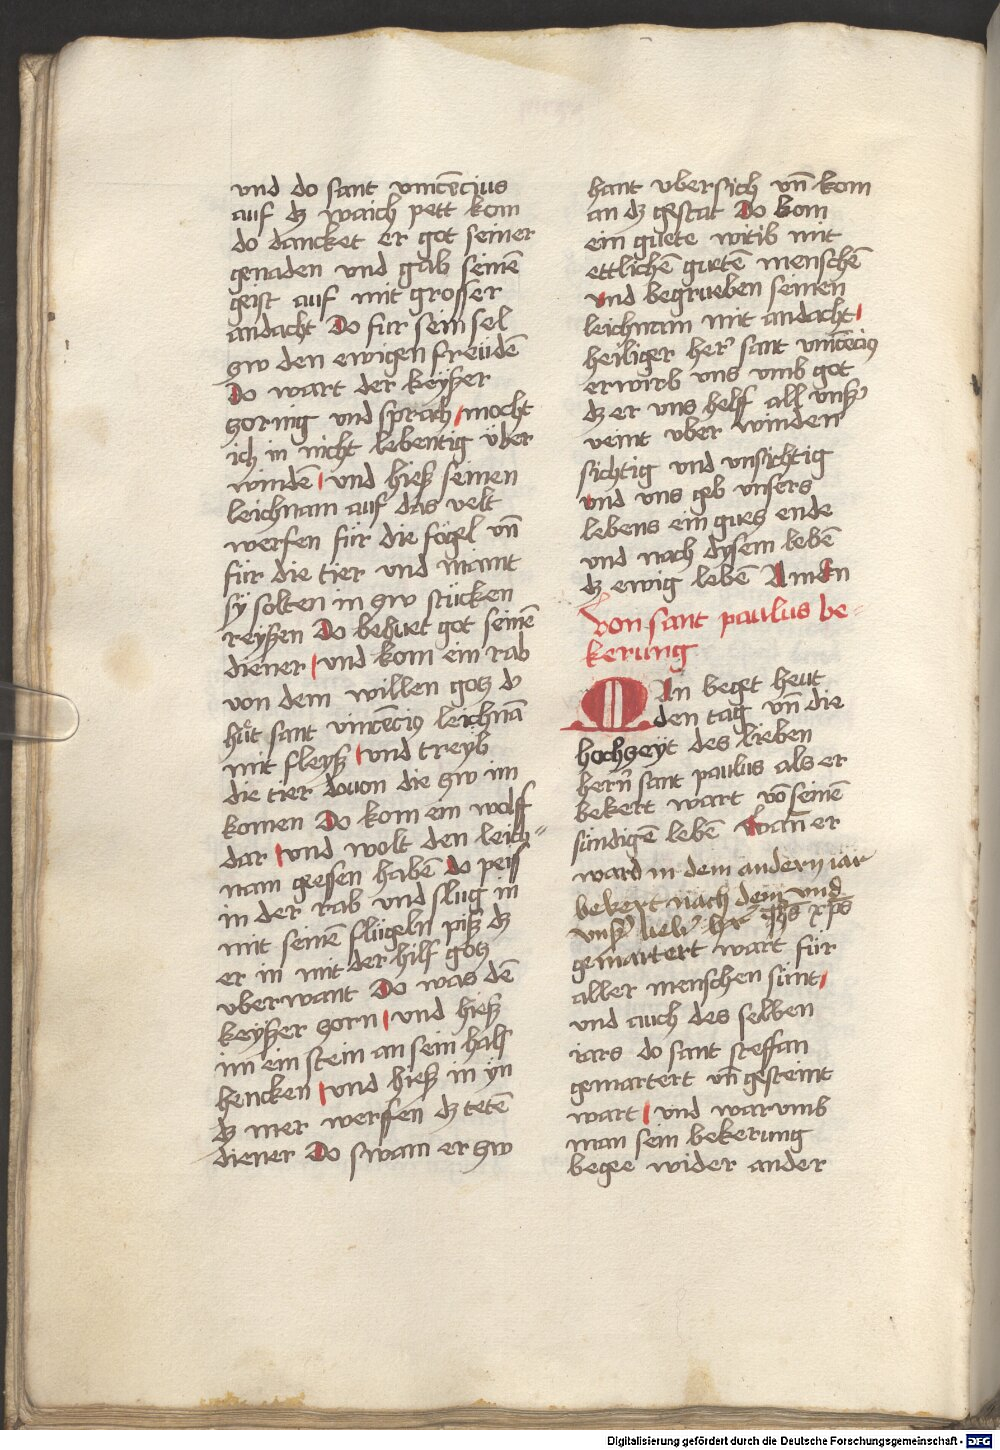 vnd do sant vincēcius
auf dz waich pett kom
do dancket er got seiner
genaden vnd gab seinē
geist auf mit grosser
andacht Do fur sein sel
zw den ewigen freüdē
Do wart der keÿszer
zornig vnd sprach mocht
ich in nicht lebentig über
windē vnd hiesz seinen
leichnam auf das velt
werfen für die fögel vn̄
für die tier vnd maint
sÿ solten in zw stücken
reyszen Do behuet got seinē
diener vnd kom ein rab
von dem willen gotz d
huͤt sant vincēciꝰ leichnā
mit fleysz vnd treyb
die tier douon die zw im
komen Do kom ein wolff
dar vnd wolt den leich=
nam geessen habē do peis
in der rab vnd slug in
mit seinē flügeln pisz dz
er in mit der hilf gotz
vberwant Do was dē
keyszer zorn vnd hiesz
im ein stein an sein hals
hencken vnd hiesz in yn
dz mer werffen dz tetē
diener Do swam er zw
hant vbersich vn̄ kom
an dz gestat Do kom
ein guete witib mit
ettlichē guetē menschē
vnd begrueben seinen
leichnam mit andacht
heiliger her' sant vincēciꝰ
erwirb vns vmb got
dz er vns helf all vnsz'
veint vber winden
sichtig vnd vnsichtig
vnd vns geb vnsers
lebens ein gues ende
vnd nach dysem lebē
dz ewig lebē Amen
Von sant paulus be=
kerung
Man beget heut
den tag vn̄ die
hochzeyt des lieben
hern̄ sant paulus als er
bekert wart vō seinē
sündigē lebē wan̄ er
ward in dem andern iar
bekert nach dem vnd
vnsz' lieb' h'r ih̄s xp̄s
gemartert wart für
aller menschen sünt
vnd auch des selben
iars do sant steffan
gemartert vn̄ gesteint
wart vnd warvmb
man sein bekerung
begee wider ander
Digitalisierung gefördert durch die Deutsche Forschungsgemeinschaft - DFG